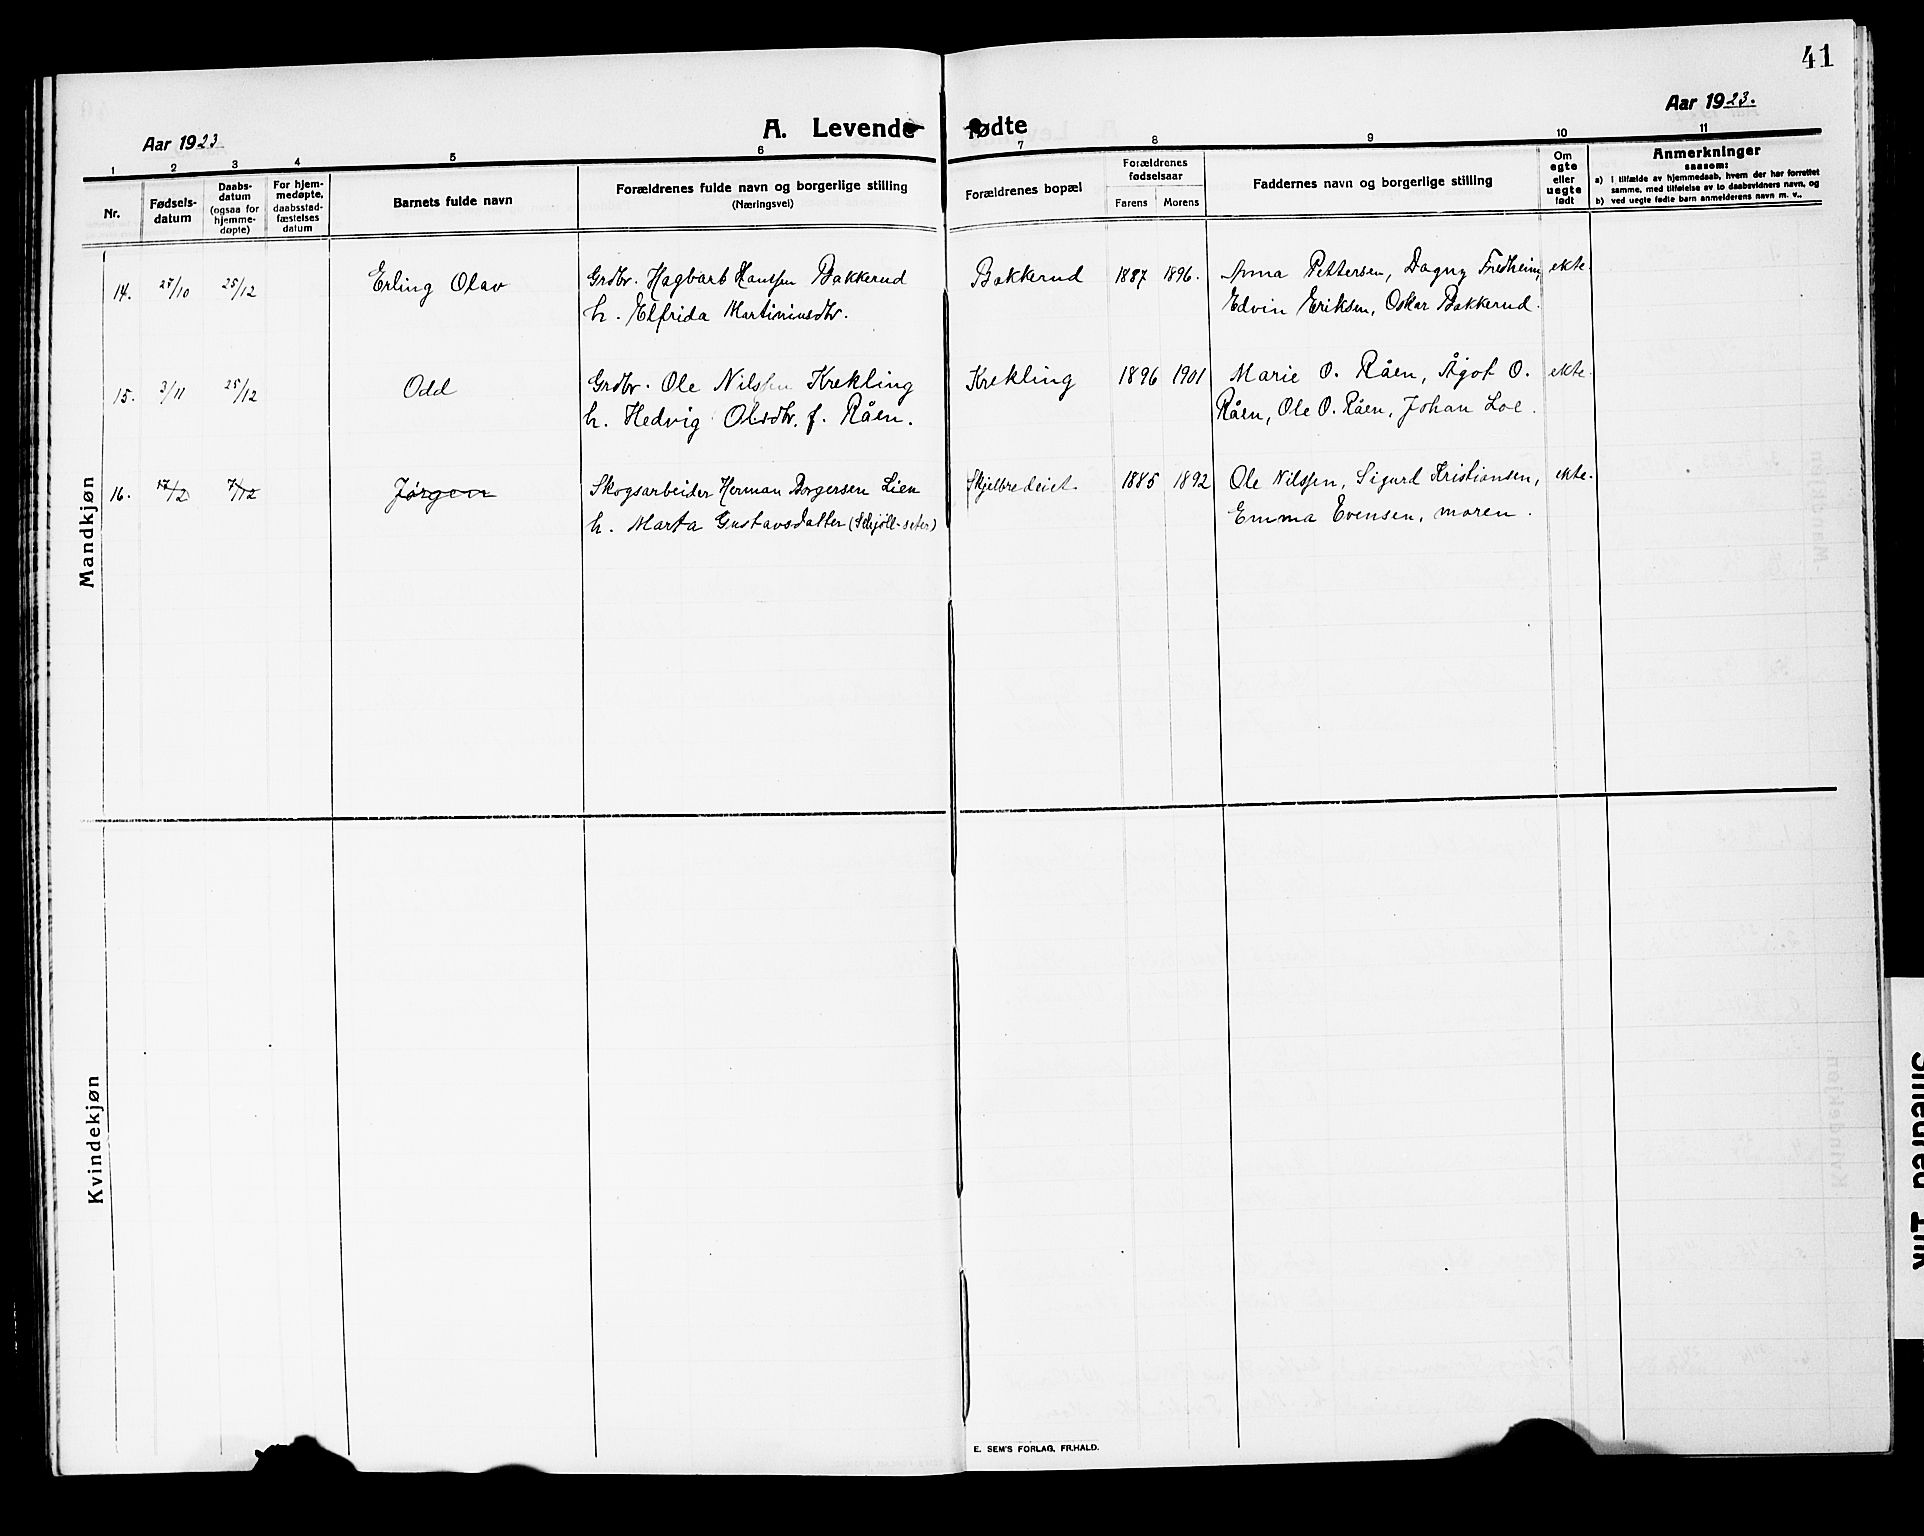 41
Aar 1923
A. Levende fødte
Aar 1923.
1 2 3 4 5 6 7 8 9 10 11
Nr.
Fødsels-
datum
Daabs-
datum
(ogsaa for
hjemme-
døpte)
For hjem-
medøpte,
daabsstad-
fæstelses
datum
Barnets fulde navn
Forældrenes fulde navn og borgerlige stilling
(Næringsvei)
Forældrenes bopæl
Forældrenes
fødselsaar
Farens Morens
Faddernes navn og borgerlige stilling
Om
egte
eller
uegte
født
Anmerkninger
saasom:
a) i tilfælde av hjemmedaab, hvem der har forrettet
samme, med tilføielse av to daabsvidners navn, og
b) ved uegte fødte barn anmelderens navn m. v..
Mandkjøn
14. 25/10 25/12 Erling Olav Grdbr. Hagbart Hanssen Bakkerud Bakkerud 1887 1896. Anna Pettersen, Dagny Fredheim, ekte.
h. Elfrida Martiniusdtr. Edvin Eriksen, Oskar Bakkerud.
15. 3/11 25/12 Odd Grdbr. Ole Nilssen Krekling Krekling 1896 1901 Marie O. Råen, Ågot O. ekte.
h. Hedvig Olsdtr. f. Råen. Råen, Ole O. Råen, Johan Loe.
16. 17/2 7/12 Jørgen Skogsarbeider Herman Borgersen Lien Skjelbredeiet 1885 1892 Ole Nilssen, Sigurd Kristiansen, ekte.
h. Marta Gustavsdatter Emma Evensen, moren.
Kvindekjøn
E. SEM'S FORLAG, FR.HALD.